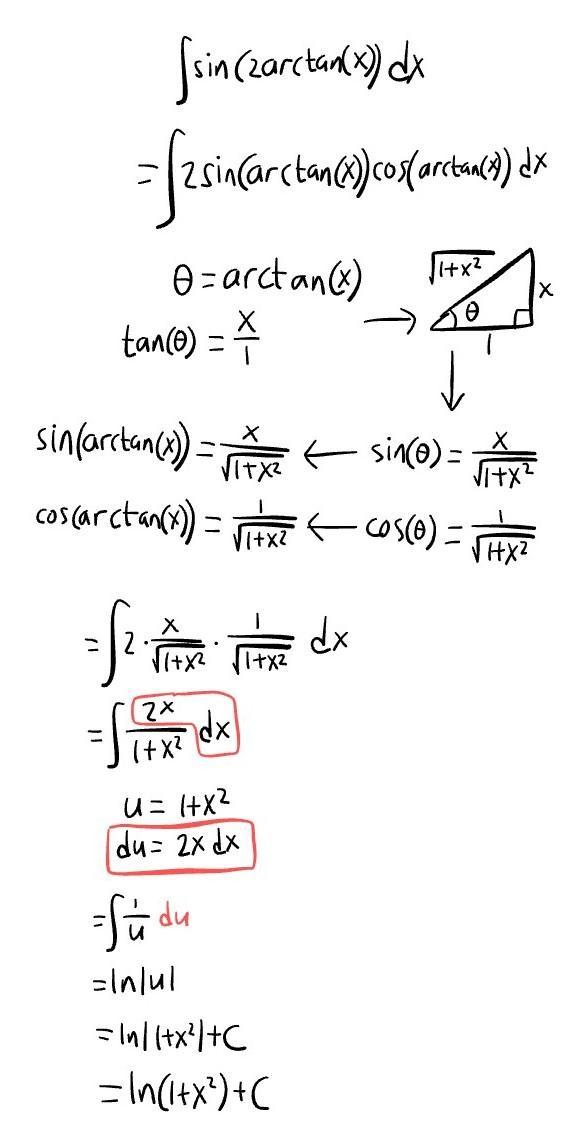 ∫sin(2arctan(x)) dx
=∫2sin(arctan(x))cos(arctan(x)) dx
θ=arctan(x)
tan(θ) = x/1 →
√1+x²
x
θ
1
↓
sin(arctan(x)) = x/√1+x² ← sin(θ) = x/√1+x²
cos(arctan(x)) = 1/√1+x² ← cos(θ) = 1/√1+x²
=∫2 · x/√1+x² · 1/√1+x² dx
=∫ 2x/1+x² dx
u = 1+x²
du = 2x dx
=∫ 1/u du
=ln|u|
=ln|1+x²|+C
=ln(1+x²)+C